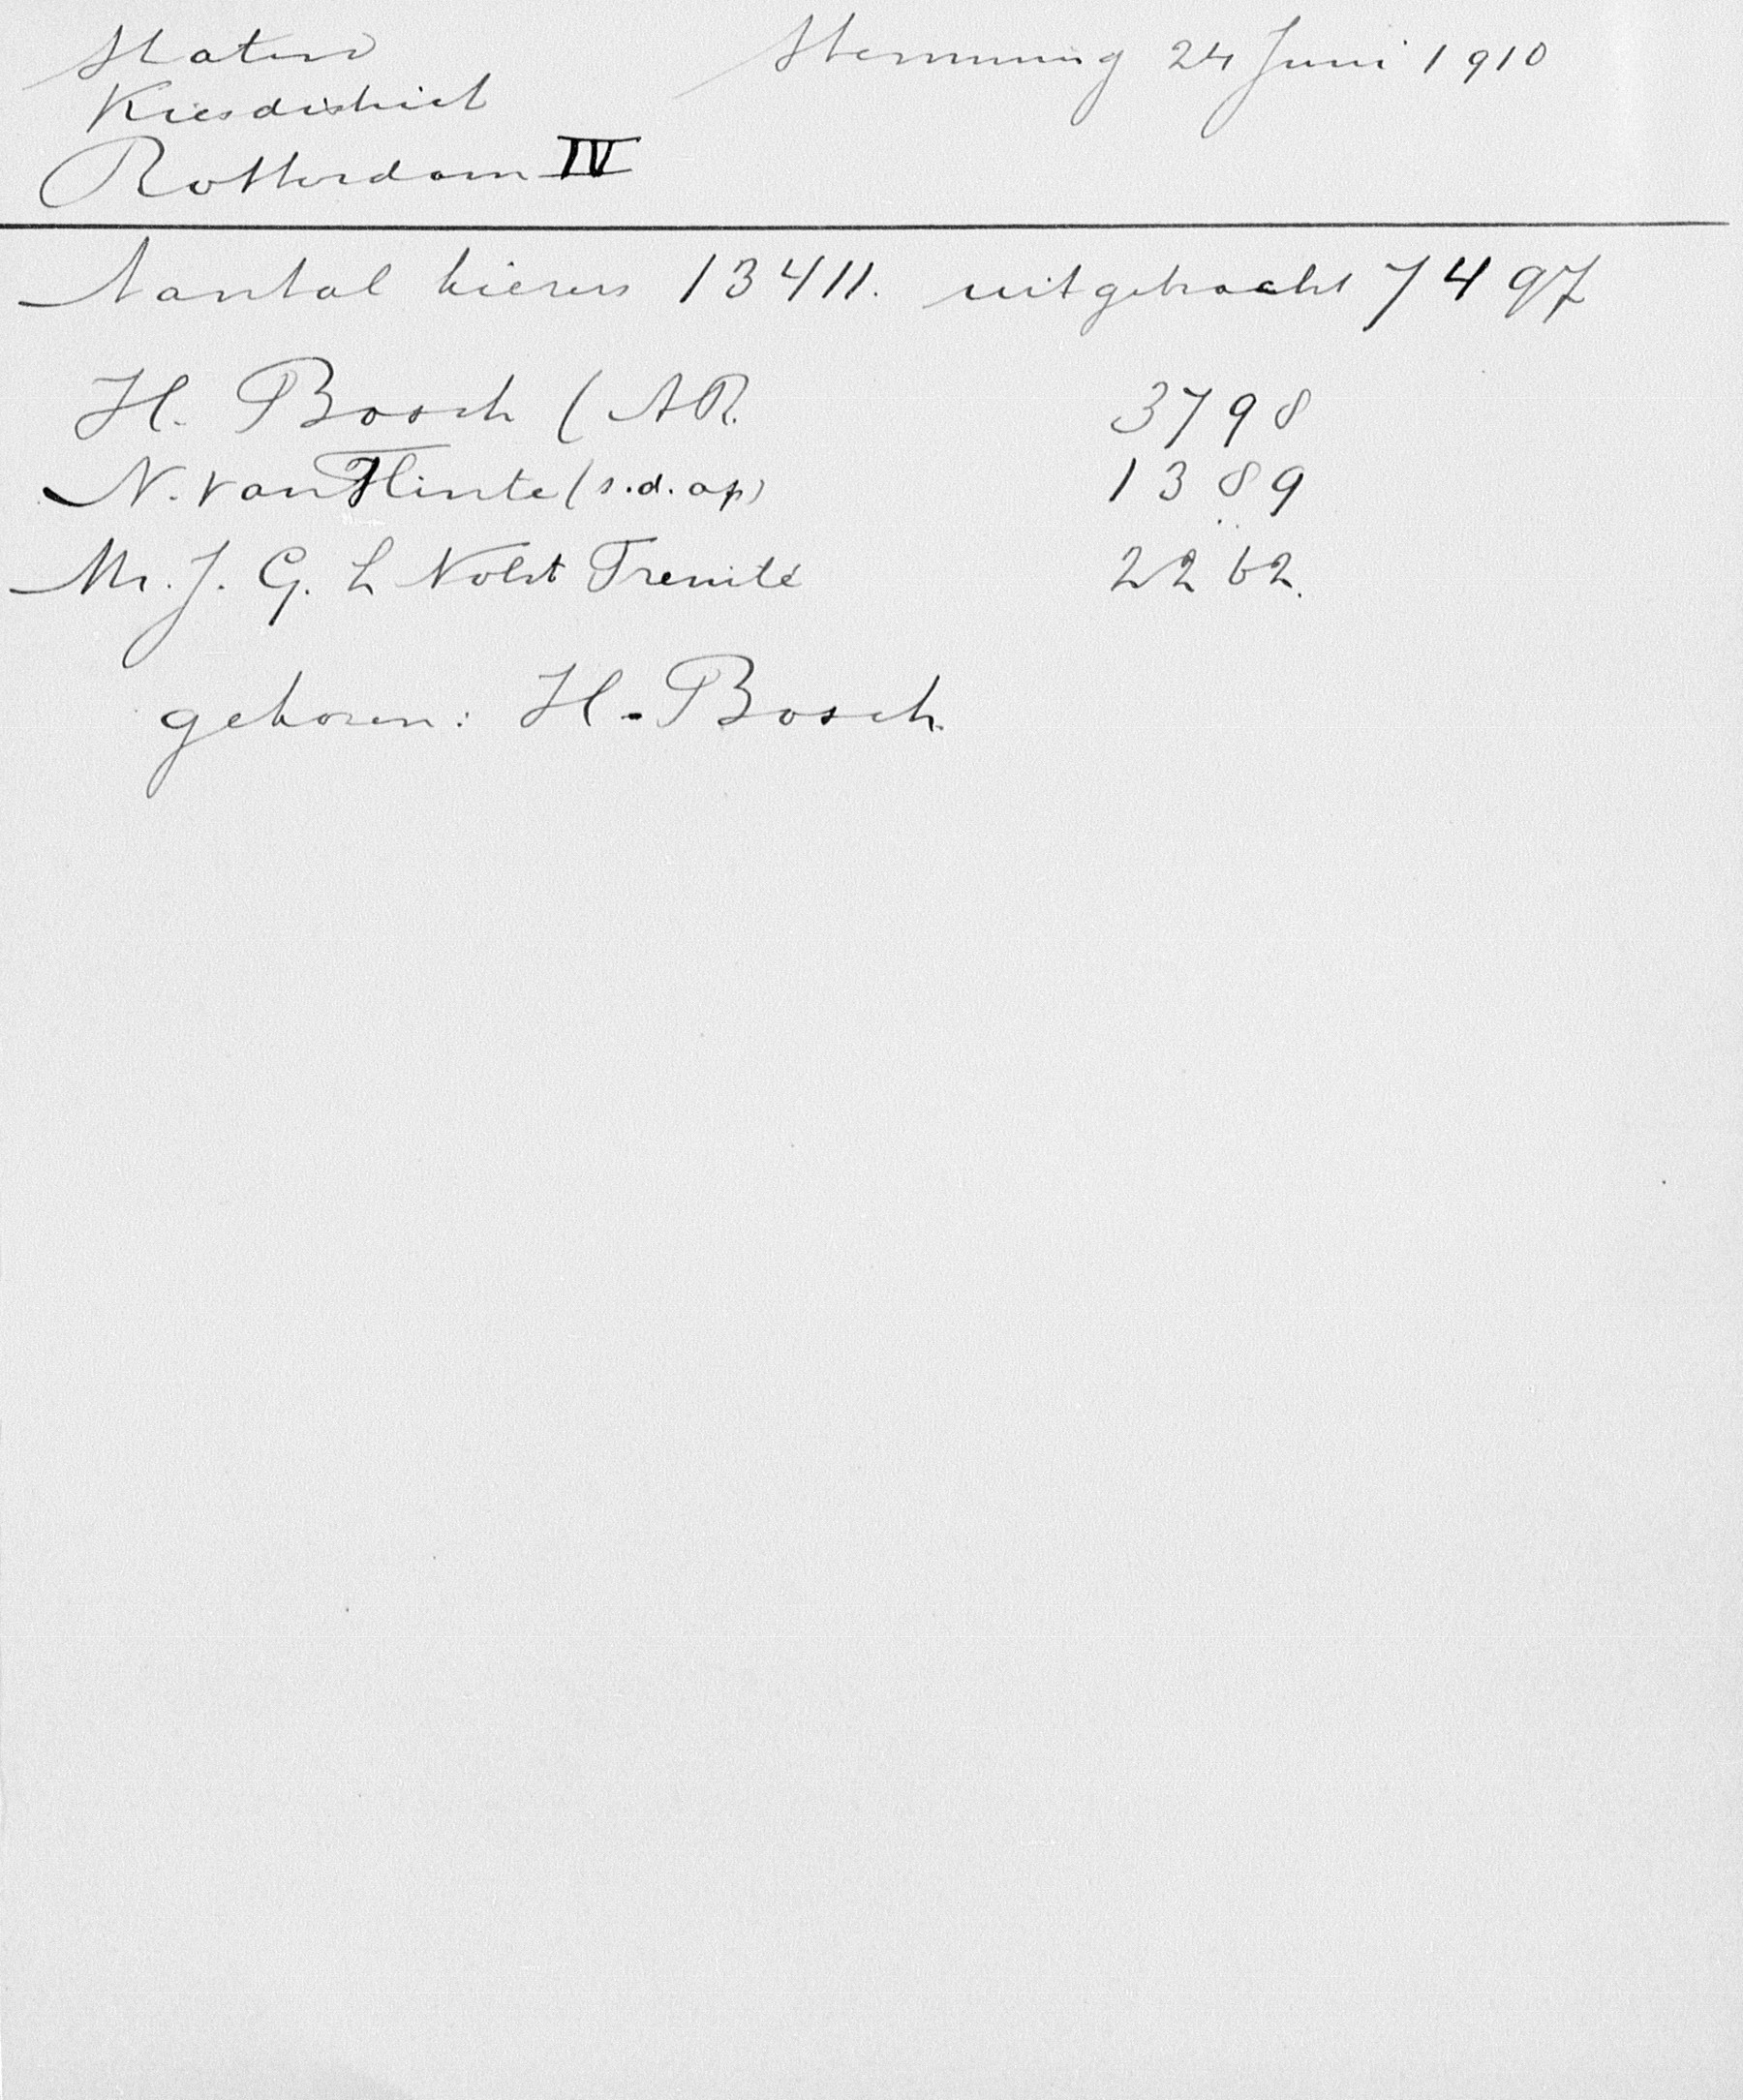 Staten Stemming 24 Juni 1910
Kiesdistrict
Rotterdam IV
Aantal kiezers 13411. uitgebracht 7497
H. Bosch (AR. 3798
N. van Hinte (s.d.ap) 1389
Mr. J. G. L Nolst Trenité 2262.
gekozen: H. Bosch